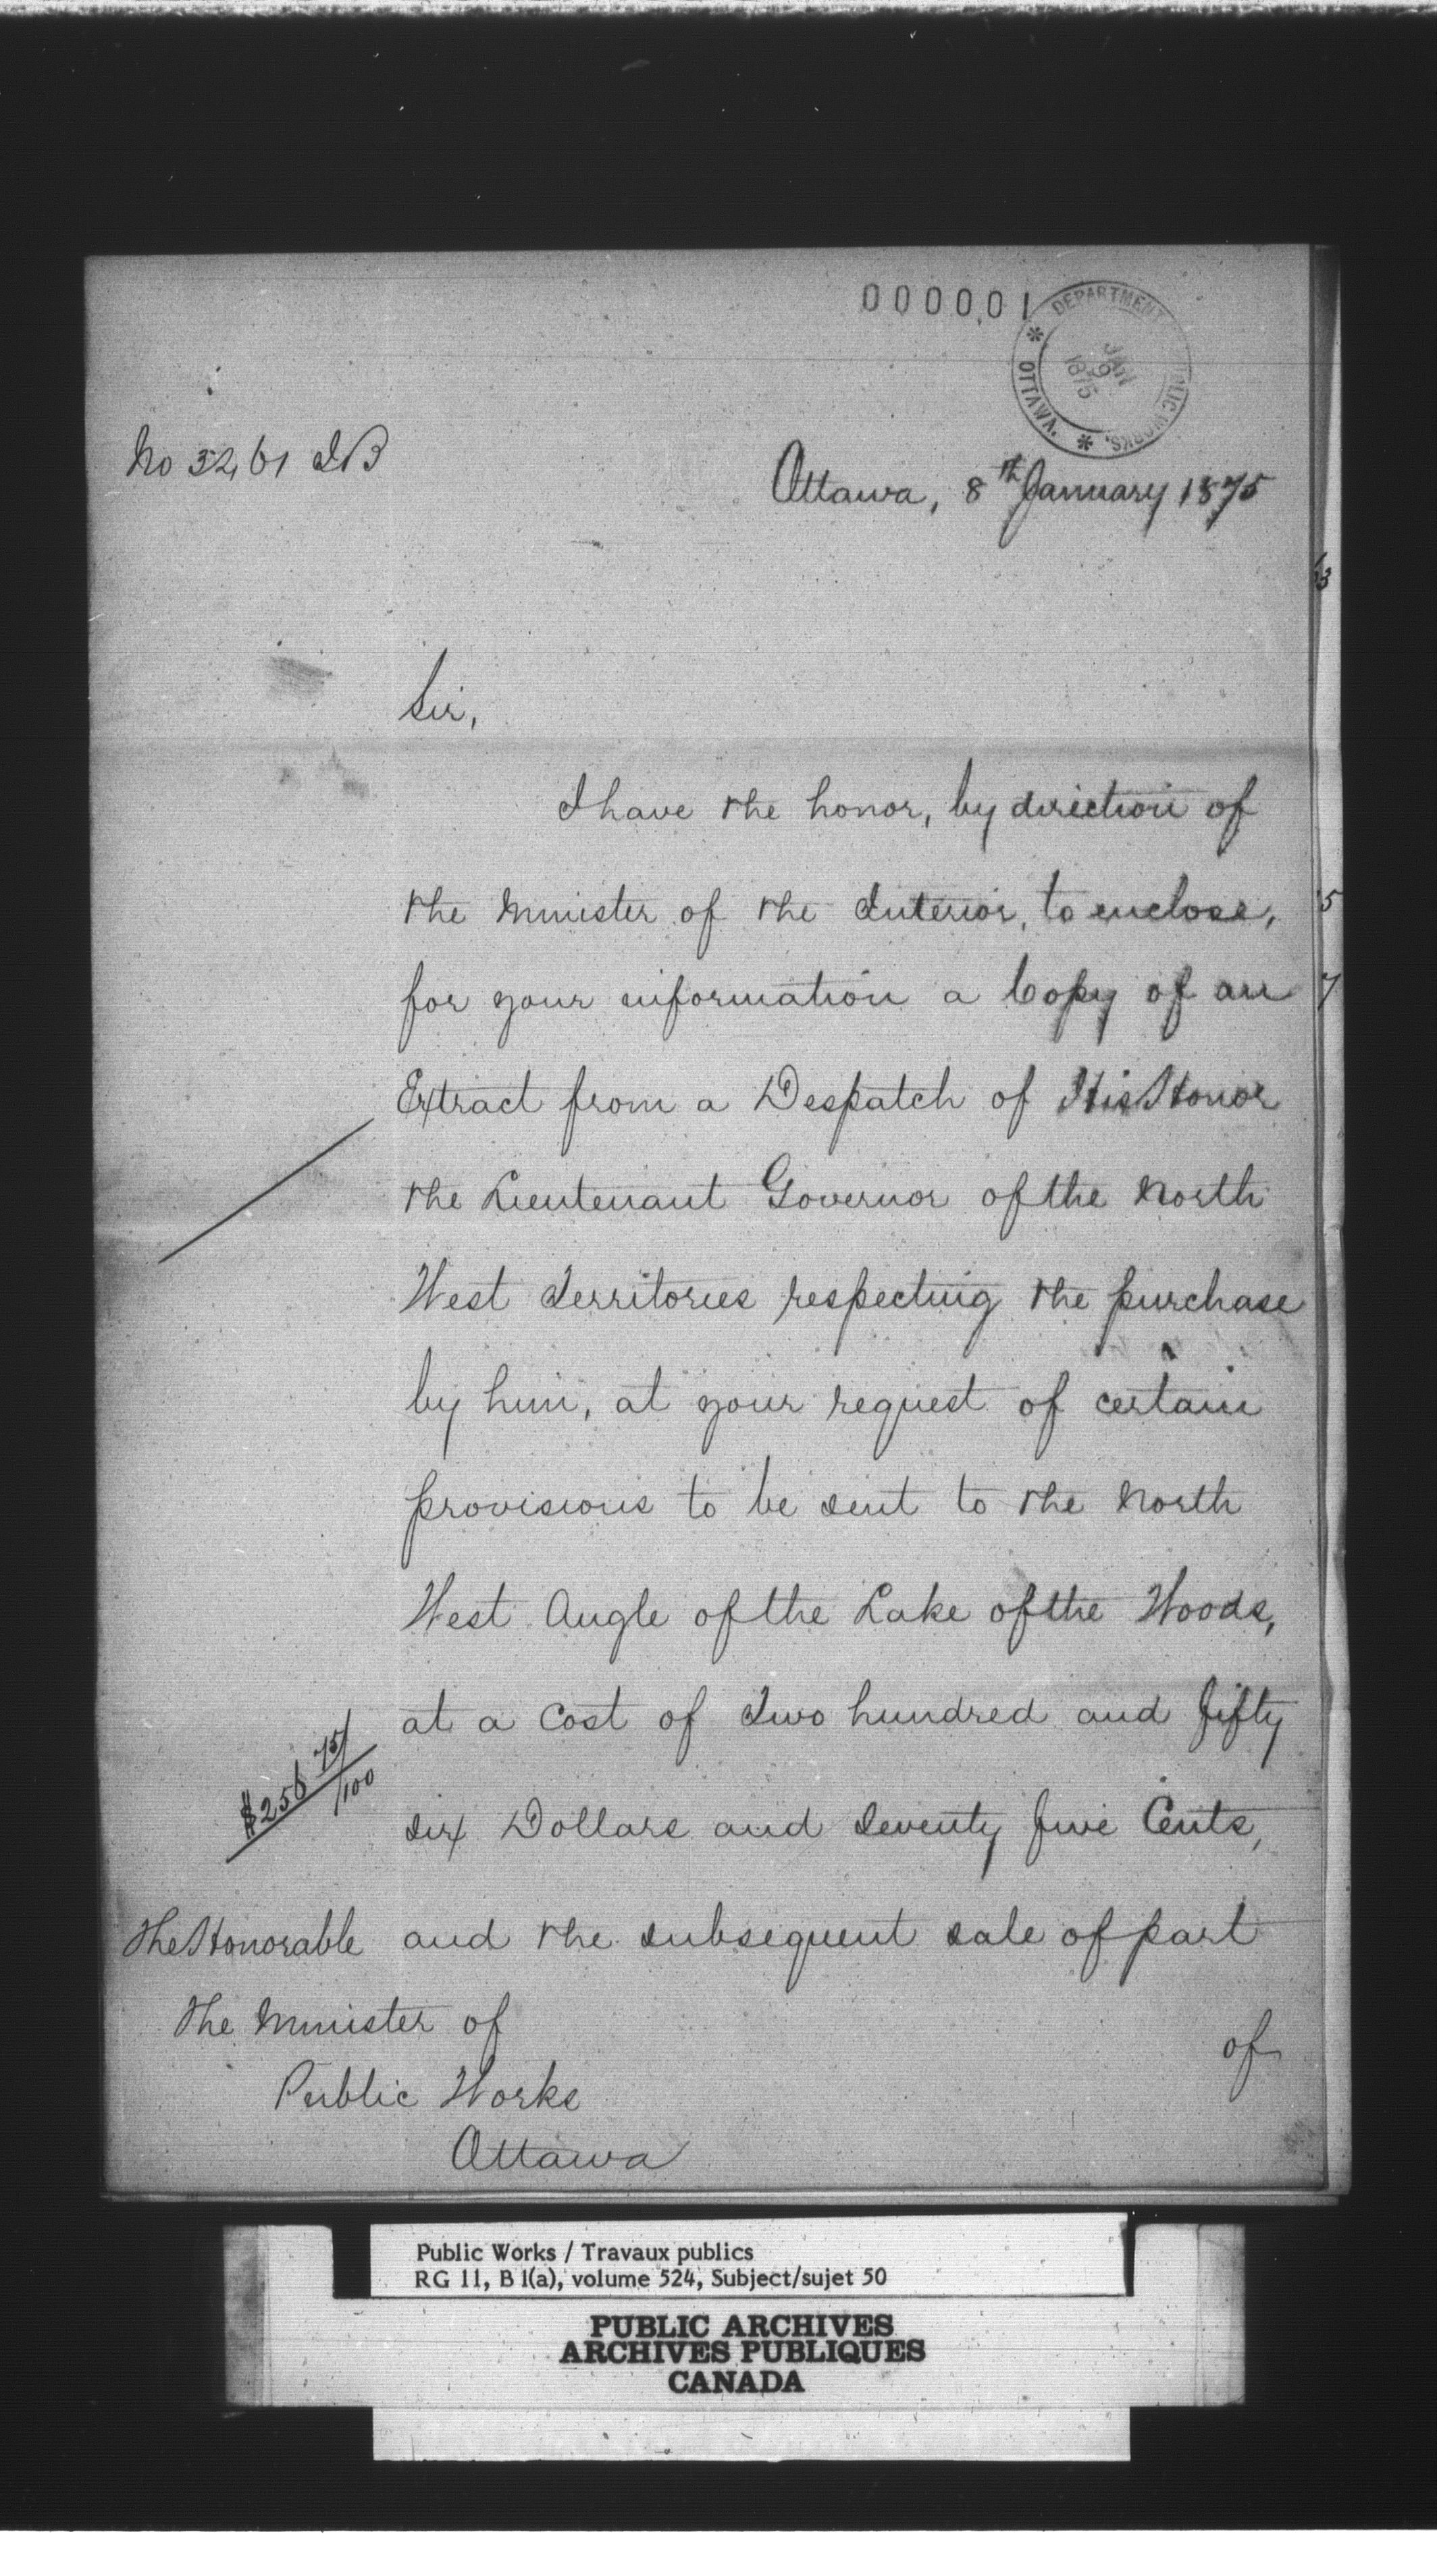 000001
DEPARTMENT PUBLIC WORKS. * OTTAWA. *
JAN
9
1875
No 3261 IB
Ottawa, 8th January 1875
Sir,
I have the honor, by direction of
the Minister of the Interior, to enclose,
for your information a Copy of an
Extract from a Despatch of His Honor
the Lieutenant Governor of the North
West Territories respecting the purchase
by him, at your request of certain
provisions to be sent to the North
West Angle of the Lake of the Woods,
at a Cost of Two hundred and fifty
$256 75/100
six Dollars and Seventy five Cents,
and the subsequent sale of part
of
The Honorable
The Minister of
Public Works
Ottawa
3
5
7
Public Works / Travaux publics
RG 11, B 1(a), volume 524, Subject/sujet 50
PUBLIC ARCHIVES
ARCHIVES PUBLIQUES
CANADA